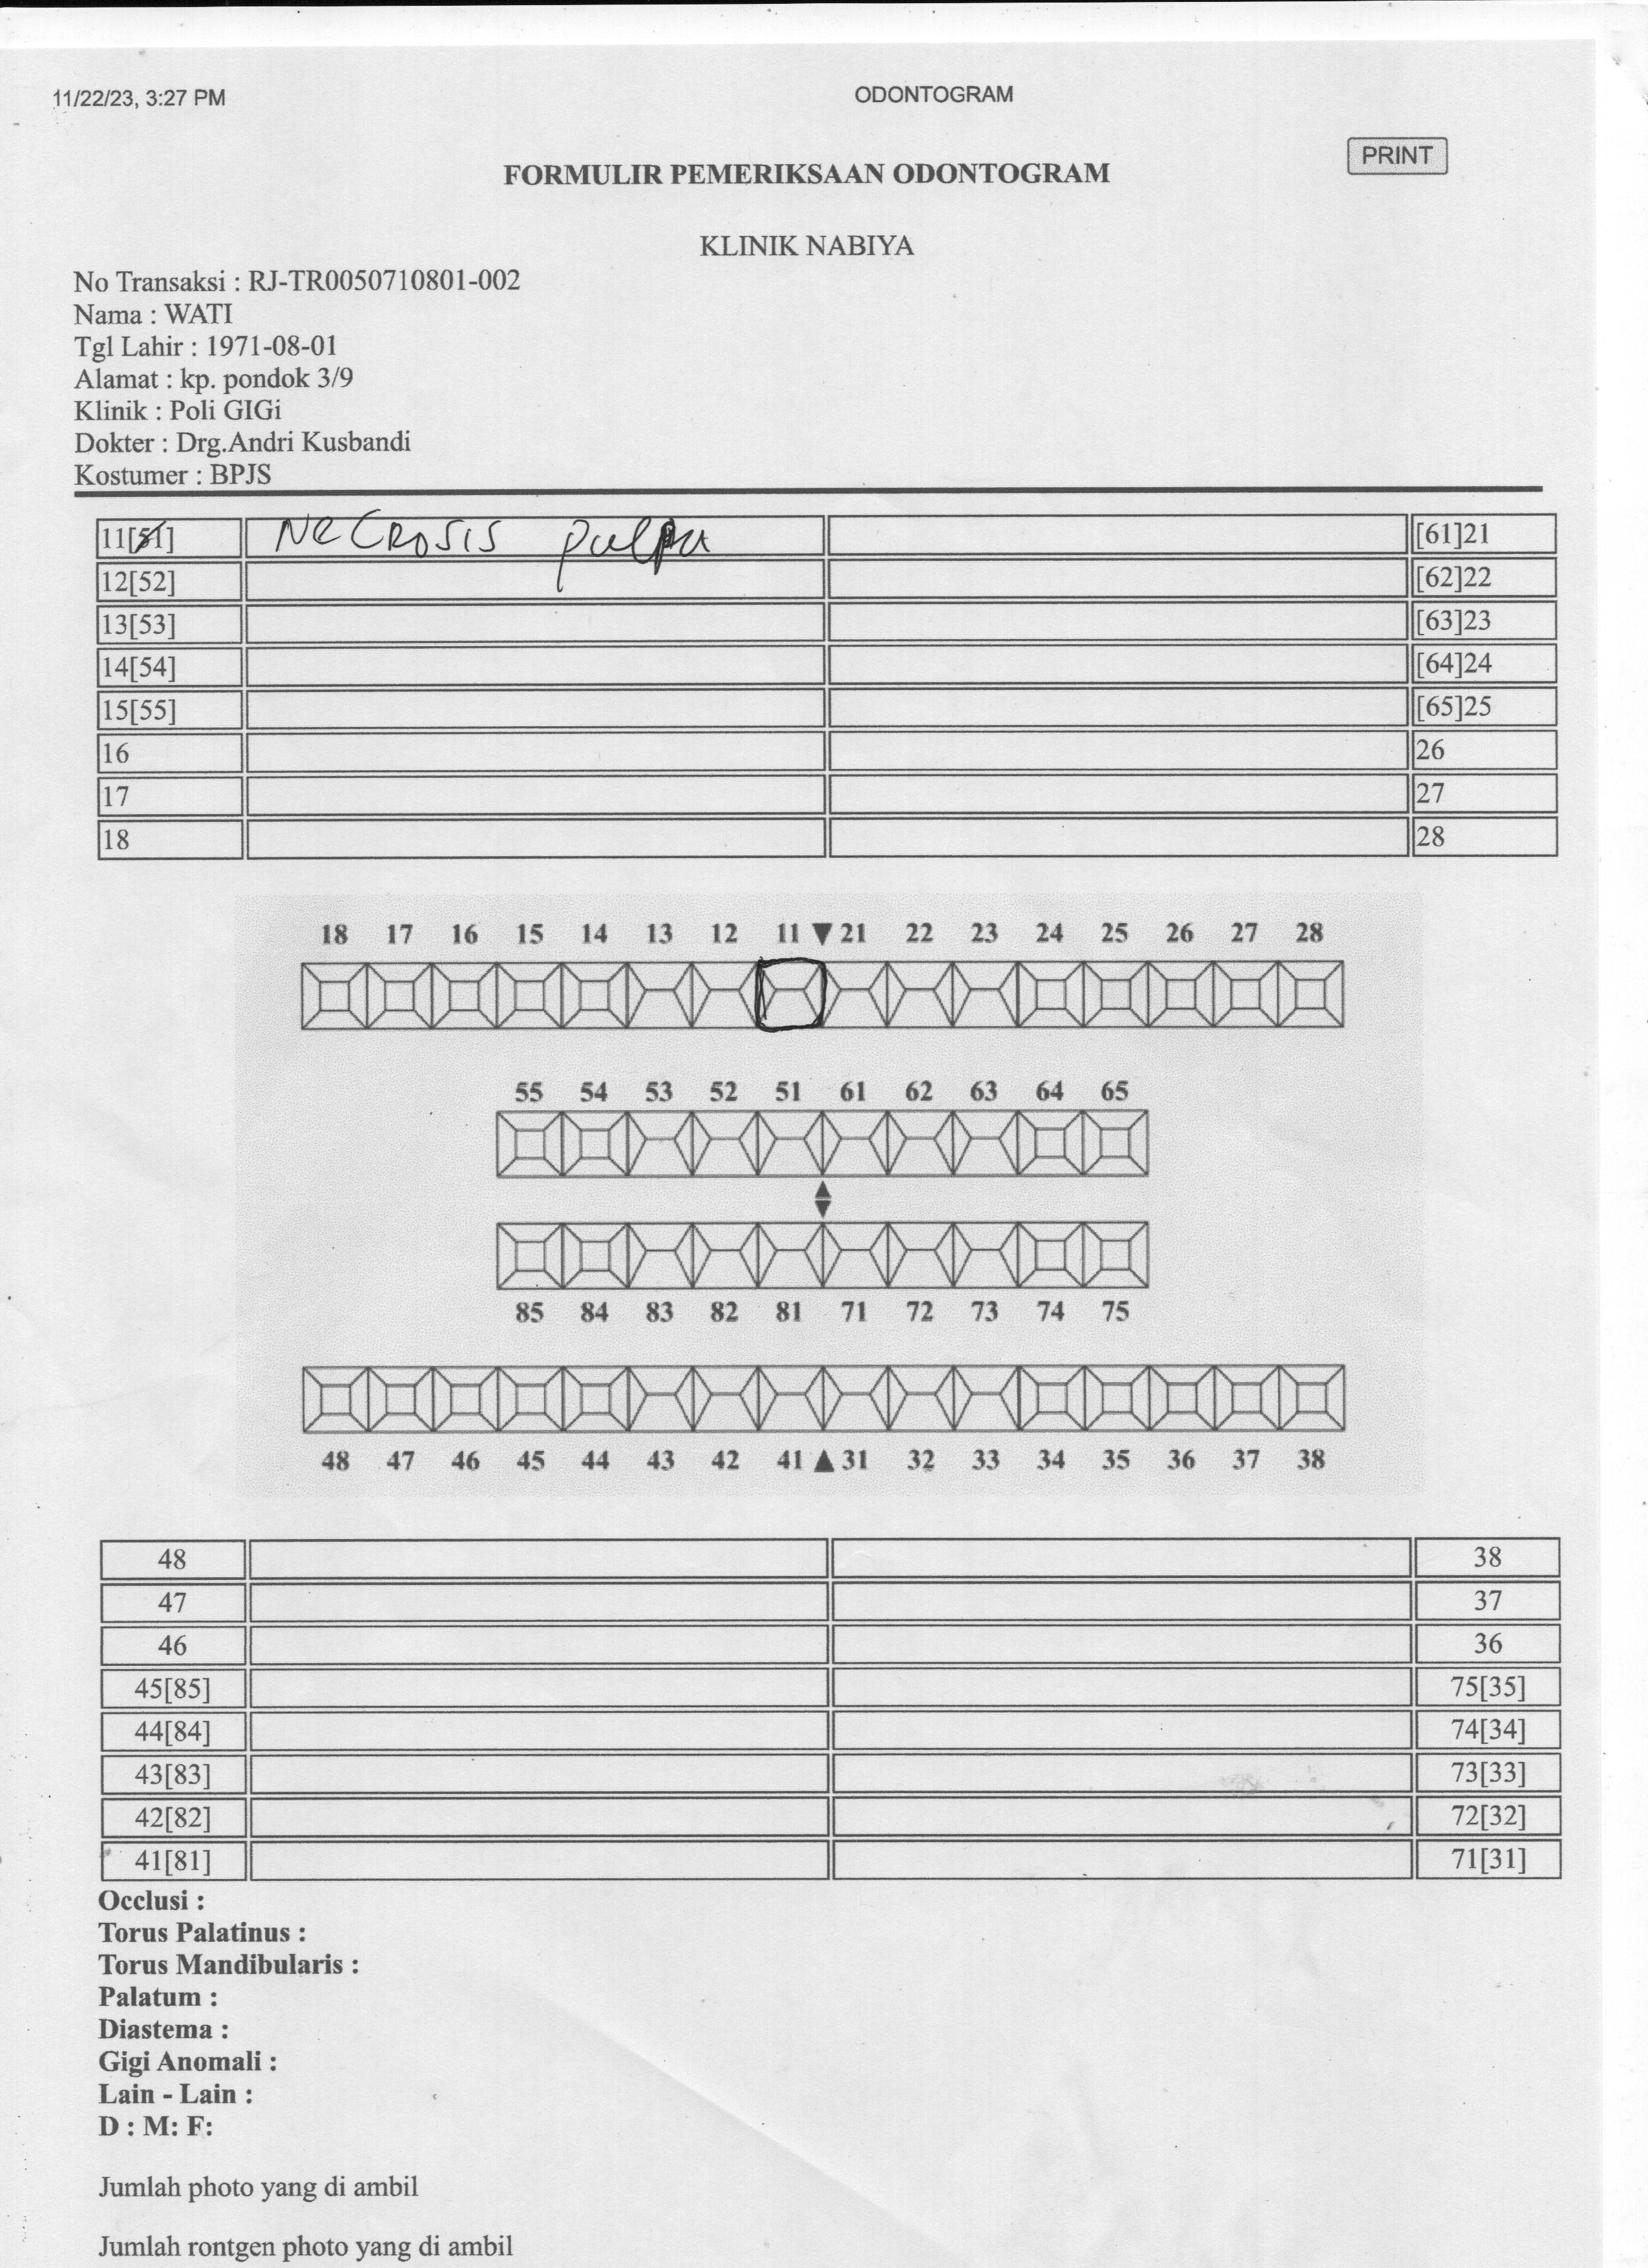 11/22/23, 3:27 PM ODONTOGRAM
PRINT
FORMULIR PEMERIKSAAN ODONTOGRAM
KLINIK NABIYA
No Transaksi : RJ-TR0050710801-002
Nama : WATI
Tgl Lahir : 1971-08-01
Alamat : kp. pondok 3/9
Klinik : Poli GIGi
Dokter : Drg.Andri Kusbandi
Kostumer : BPJS
11[51] NeCROSIS pulpa [61]21
12[52] [62]22
13[53] [63]23
14[54] [64]24
15[55] [65]25
16 26
17 27
18 28
18 17 16 15 14 13 12 11 ▼ 21 22 23 24 25 26 27 28
55 54 53 52 51 61 62 63 64 65
85 84 83 82 81 71 72 73 74 75
48 47 46 45 44 43 42 41 ▲ 31 32 33 34 35 36 37 38
48 38
47 37
46 36
45[85] 75[35]
44[84] 74[34]
43[83] 73[33]
42[82] 72[32]
41[81] 71[31]
Occlusi :
Torus Palatinus :
Torus Mandibularis :
Palatum :
Diastema :
Gigi Anomali :
Lain - Lain :
D : M: F:
Jumlah photo yang di ambil
Jumlah rontgen photo yang di ambil